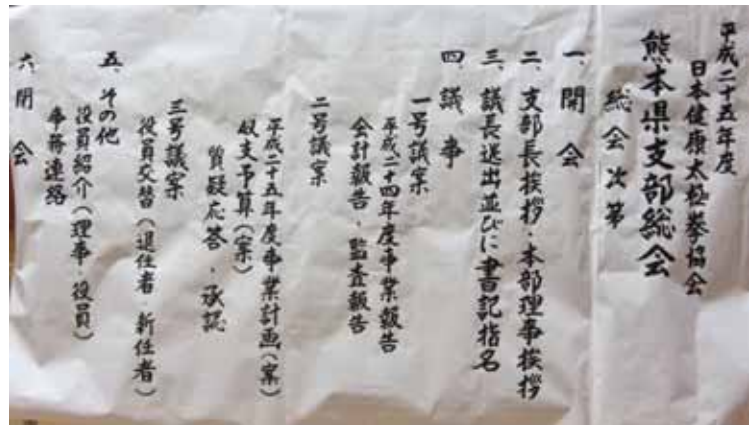 平成二十五年度
日本健康太極拳協会
熊本県支部総会
総会次第
一、開会
二、支部長挨拶・本部理事挨拶
三、議長選出並びに書記指名
四、議事
一号議案
平成二十四年度事業報告
会計報告、監査報告
二号議案
平成二十五年度事業計画(案)
収支予算(案)
質疑応答、承認
三号議案
役員交替(退任者・新任者)
五、その他
役員紹介(理事・役員)
事務連絡
六、閉会